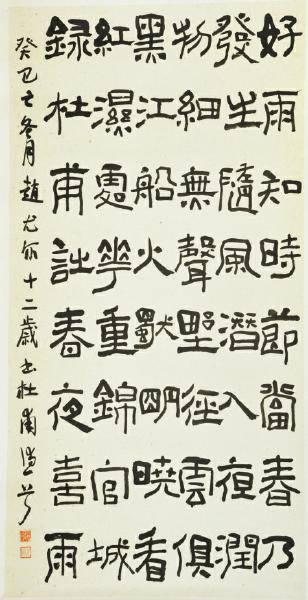 好雨知時節當春乃
發生隨風潛入夜潤
物細無聲野徑雲俱
黑江船火獨明曉看
紅濕處華重錦官城
錄杜甫詩春夜喜雨
癸巳冬月趙十二歲書杜甫詩